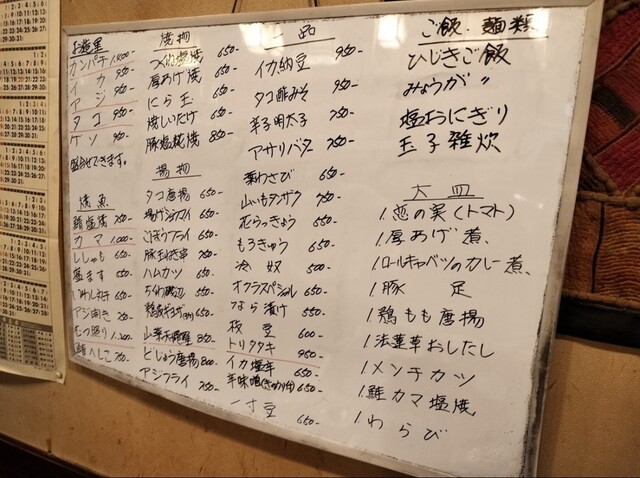 お造里
カンパチ 1,400-
イカ 950-
アジ 950-
タコ 950-
ゲソ 950-
盛合せできます。
焼魚
カマ 1,000-
ししゃも 650-
アジ開き
焼物
つくね塩焼 650-
厚あげ焼 650-
にら玉 650-
焼しいたけ 650-
豚塩糀焼 800-
揚物
タコ唐揚 650-
ごぼうフライ 650-
豚玉ねぎ串 750-
ハムカツ 650-
ちくわ磯辺 650-
どじょう唐揚 800-
アジフライ 750-
一品
イカ納豆 750-
タコ酢みそ 950-
辛子明太子 750-
アサリバタ 750-
葉わさび 650-
山いもタンザク 750-
花らっきょう 550-
もろきゅう 650-
冷奴 500-
オクラスペシャル 650-
なら漬け 550-
枝豆 600-
トリタタキ 950-
イカ塩辛 650-
一寸豆 650-
ご飯・麺類
ひじきご飯
みょうが〃
塩おにぎり
玉子雑炊
大皿
1. 恋の実(トマト)
1. 厚あげ煮、
1. ロールキャベツのカレー煮、
1. 豚足
1. 鶏もも唐揚
1. 法蓮草おしたし
1. メンチカツ
1. 鮭カマ塩焼
1. わらび